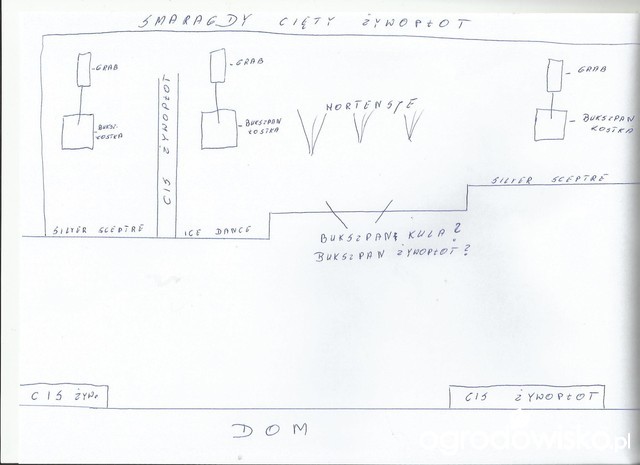 SMARAGDY CIĘTY ŻYWOPŁOT
GRAB
GRAB
GRAB
BUKSZ.
KOSTKA
CIS ŻYWOPŁOT
BUKSZPAN
KOSTKA
HORTENSJE
BUKSZPAN
KOSTKA
SILVER SCEPTRE
ICE DANCE
SILVER SCEPTRE
BUKSZPAN KULA?
BUKSZPAN ŻYWOPŁOT?
CIS ŻYW.
CIS ŻYWOPŁOT
DOM
ogrodowisko.pl